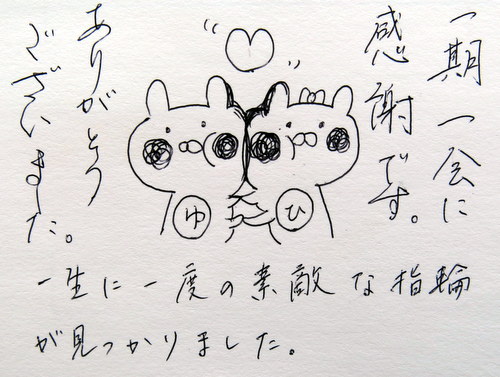 一期一会に
感謝です。
ありがとう
ございました。
ゆ
ひ
一生に一度の素敵な指輪
が見つかりました。